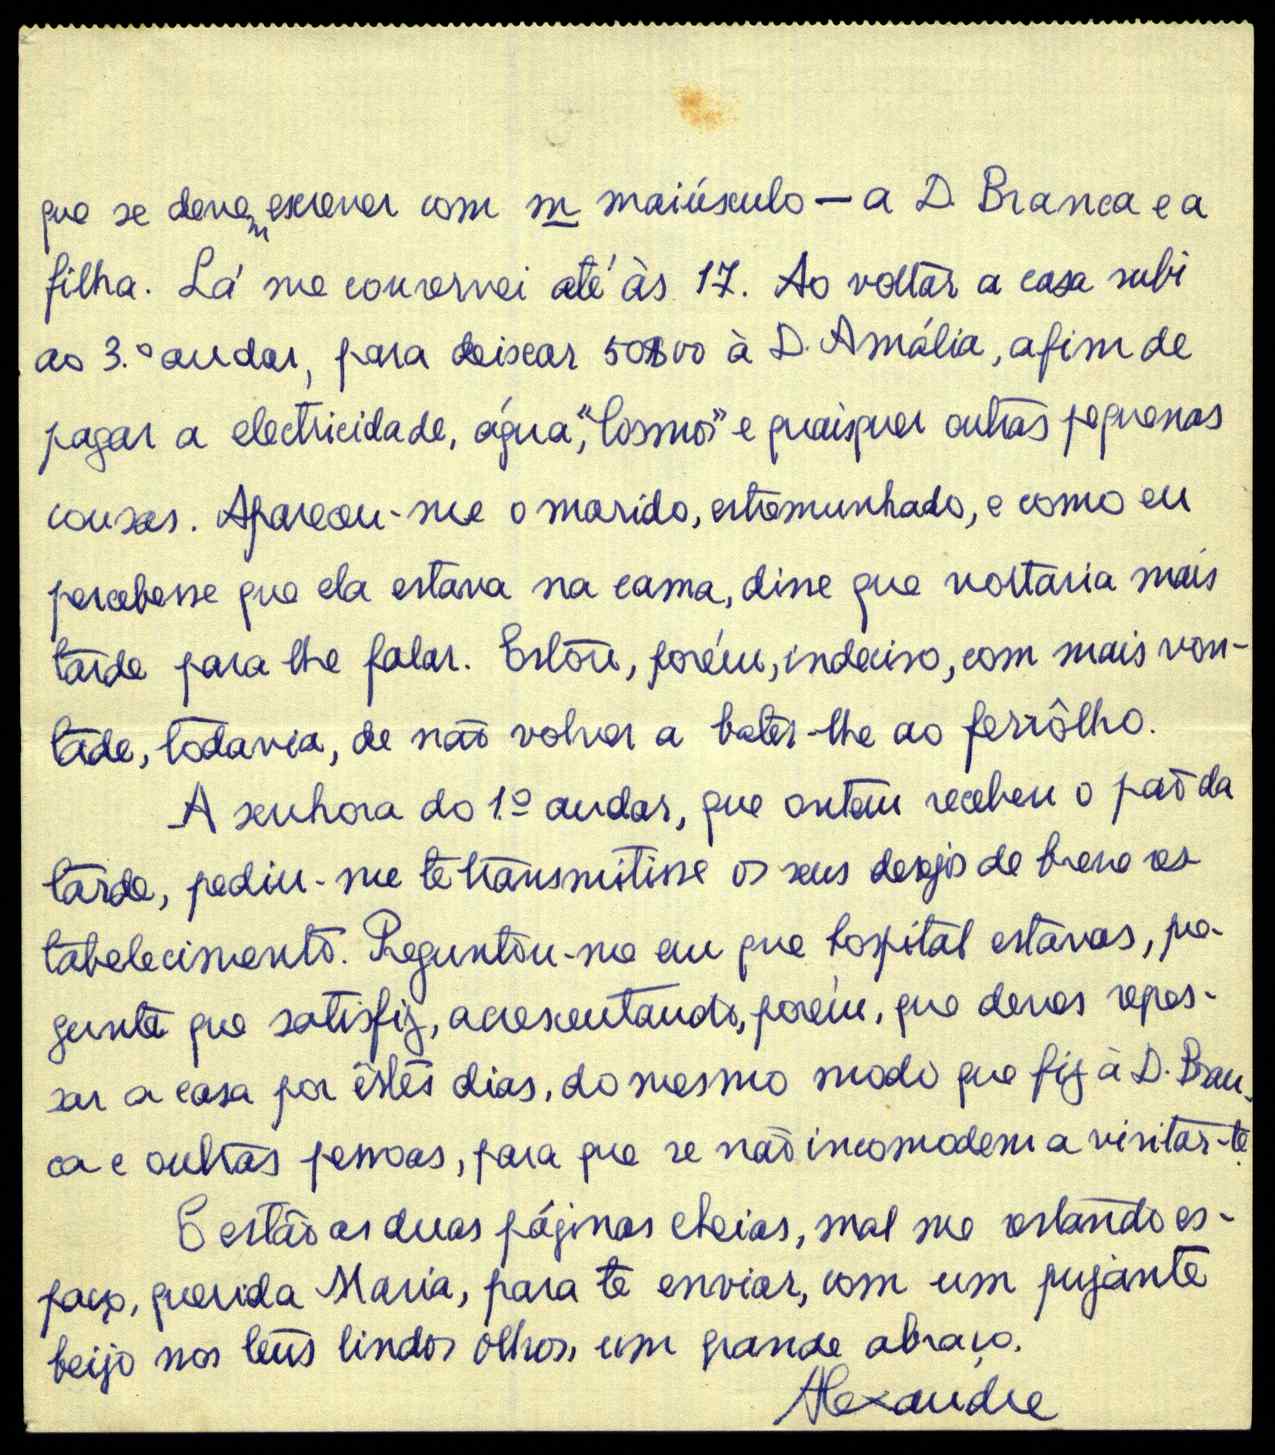 que se devem escrever com m maiúsculo — a D. Branca e a
filha. Lá me conservei até às 17. Ao voltar a casa subi
ao 3.º andar, para deixar 50$00 à D. Amália, afim de
pagar a electricidade, água, "Cosmos" e quaisquer outras pequenas
cousas. Apareceu-me o marido, estremunhado, e como eu
percebesse que ela estava na cama, disse que voltaria mais
tarde para lhe falar. Estou, porém, indeciso, com mais von-
tade, todavia, de não volver a bater-lhe ao ferrôlho.
A senhora do 1.º andar, que ontem recebeu o pão da
tarde, pediu-me te transmitisse os seus desejos de breve res-
tabelecimento. Preguntou-me em que hospital estavas, pre-
gunta que satisfiz, acrescentando, porém, que deves repres-
sar a casa por êstes dias, do mesmo modo que fiz à D. Bran-
ca e outras pessoas, para que se não incomodem a visitar-te.
E estão as duas páginas cheias, mal me restando es-
paço, querida Maria, para te enviar, com um pujante
beijo nos teus lindos olhos, um grande abraço.
Alexandre